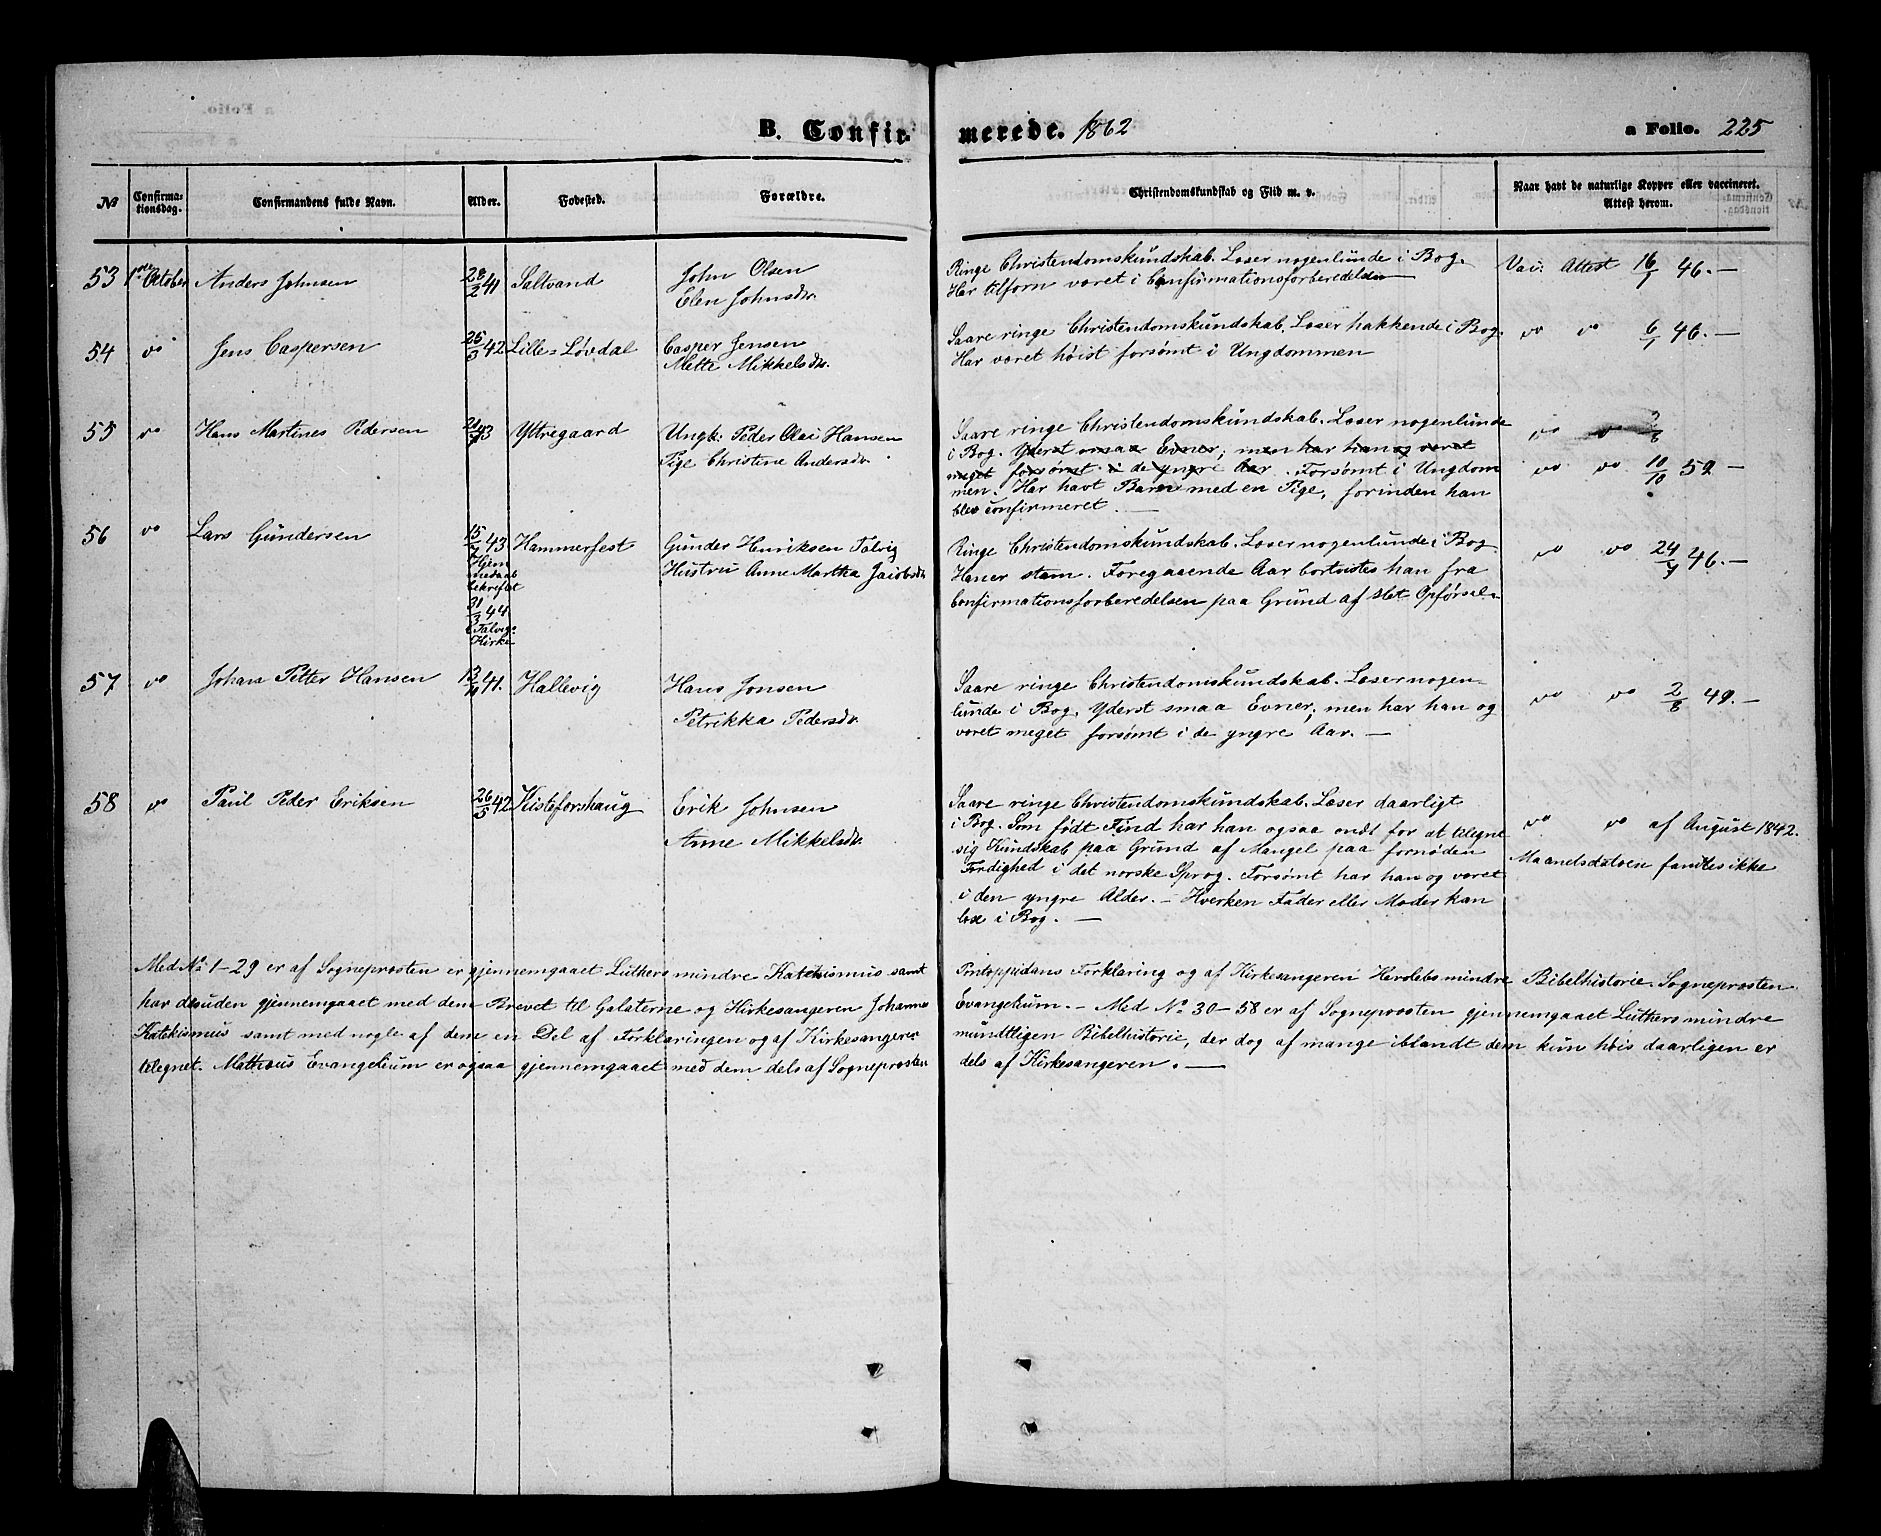 B. Confirmerede. 1862
a Folio. 225
No Confirmationsdag. Confirmandens fulde Navn. Alder. Fodested. Forældre. Christendomskundskab og Flid m. v. Naar havt de naturlige Kopper eller vaccineret. Attest herom.
53 1ste October Anders Johnsen 28/2 41 Saltvand John Olsen
Elen Johnsdr.
Ringe Christendomskundskab. Læser nogenlunde i Bog.
Har tilforn været i Confirmationsforberedelsen
Vac: Attest 16/7 46. —
54 do Jens Caspersen 42 Lille-Løvdal Casper Jensen
Mette Mikkelsdr.
Saare ringe Christendomskundskab. Læser hakkende i Bog.
Har været høist forsømt i Ungdommen
do do 46. —
55 do Hans Martines Pedersen 43 Yttregaard Ungk: Peder Olai Hansen
Pige Christine Andersdr.
Saare ringe Christendomskundskab. Læser nogenlunde
i Bog. Yderst smaa Evner; men har han og været
meget forsømt i de yngre Aar. Forsømt i Ungdom
men. Har havt Barn med en Pige, forinden han
blev confirmeret. —
do do 2/8
do do 10/10 52 —
56 do Lars Gundersen 15/7 43
Hjem
medaab
bekræftet
31/3 44
i Talvigs
Kirke
Hammerfest Gunder Henriksen Talvig
Hustru Anne Martha Jacobsdr
Ringe Christendomskundskab. Læser nogenlunde i Bog
Han er stam. Foregaaende Aar bortvistes han fra
Confirmationsforberedelsen paa Grund af slet Opførsel.
do do 24/7 46. —
57 do Johan Petter Hansen 41. Hallevig Hans Jonsen
Petrikka Pedersdr.
Saare ringe Christendomskundskab. Læser nogen-
lunde i Bog. Yderst smaa Evner; men har han og
været meget forsømt i de yngre Aar. —
do do 2/8 49. —
58 do Paul Peder Eriksen 26/5 42 Kisteforshaug Erik Johnsen
Anne Mikkelsdr.
Saare ringe Christendomskundskab. Læser daarligt
i Bog. Som født Find har han ogsaa ondt for at tilegne
sig Kundskab paa Grund af Mangel paa fornøden
Færdighed i det norske Sprog. Forsømt har han og været
i den yngre Alder. — Hverken Fader eller Moder kan
læse i Bog. —
do do af August 1842.
Maanedsdatoen fandtes ikke
Med No 1-29 er af Sogneprosten er gjennemgaaet Luthers mindre Katekismus samt Pontoppidans Forklaring og af Kirkesangeren Herslebs mindre Bibelhistorie. Sogneprosten
har desuden gjennemgaaet med dem Brevet til Galaterne og Kirkesangeren Johannes Evangelium. — Med No 30-58 er af Sogneprosten gjennemgaaet Luthers mindre
Katekismus samt med nogle af dem en Del af Forklaringen og af Kirkesangeren mundtligen Bibelhistorie, der dog af mange iblandt dem kun høist daarligen er
tilegnet. Mathæus Evangelium er ogsaa gjennemgaaet med dem dels af Sogneprosten dels af Kirkesangeren. —